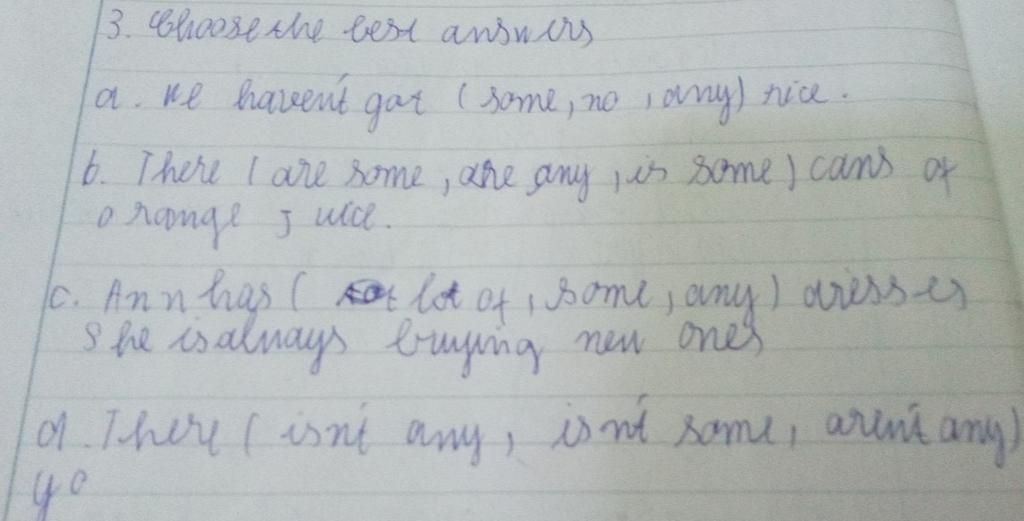 3. Choose the best answers
a. we haven't got (some, no, any) rice.
b. There (are some, are any, is some) cans of
orange juice.
c. Ann has ( lot of, some, any) dresses
She is always buying new ones
d. There (isn't any, isn't some, aren't any)
yo